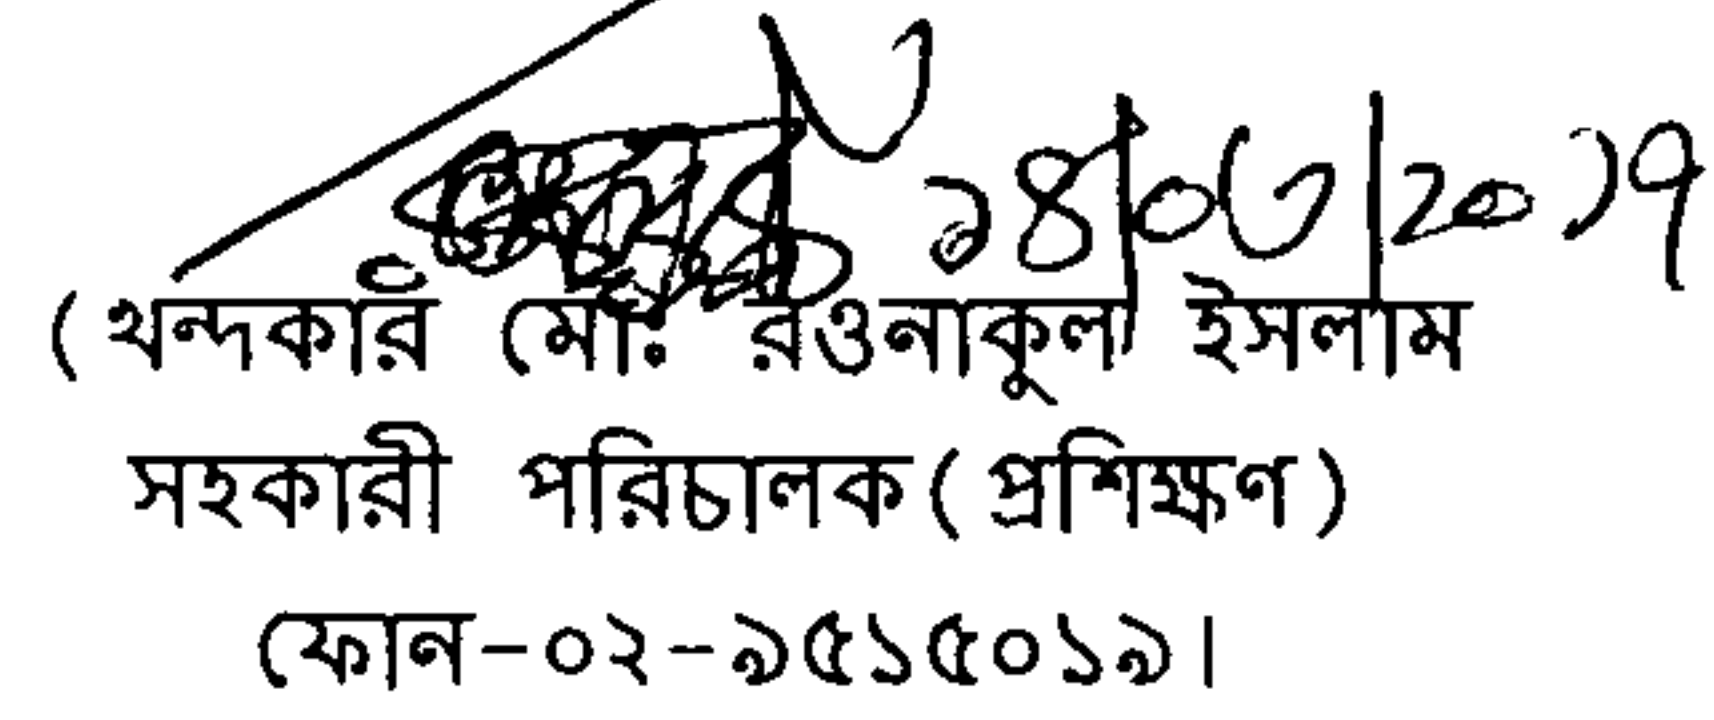 ১৪/০৩/২০১৭
(খন্দকার মো: রওনাকুল ইসলাম
সহকারী পরিচালক (প্রশিক্ষণ)
ফোন-০২-৯৫১৫০১৯।